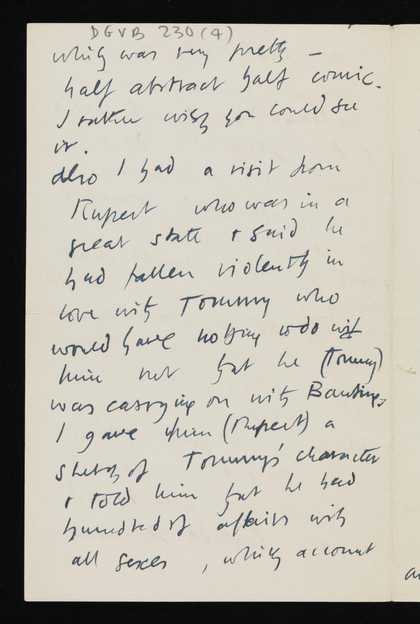 DGVB 230 (4)
which was very pretty –
half abstract half comic.
I rather wish you could see
it.
Also I had a visit from
Rupert who was in a
great state & said he
had fallen violently in
love with Tommy who
would have nothing to do with
him not that he (Tommy)
was carrying on with Banting.
I gave him (Rupert) a
sketch of Tommy's character
& told him that he had
hundred of affairs with
all sexes, which account